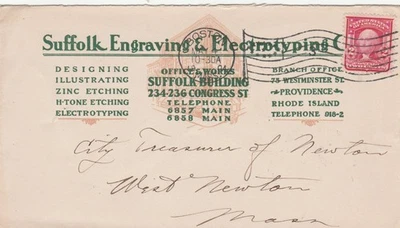 Suffolk Engraving & Electrotyping
BOSTON
10-30A
DESIGNING
ILLUSTRATING
ZINC ETCHING
H-TONE ETCHING
ELECTROTYPING
OFFICE & WORKS
SUFFOLK BUILDING
234-236 CONGRESS ST
TELEPHONE
6857 MAIN
6858 MAIN
BRANCH OFFICE
75 WESTMINSTER ST.
PROVIDENCE
RHODE ISLAND
TELEPHONE 918-2
City Treasurer of Newton
West Newton
Mass